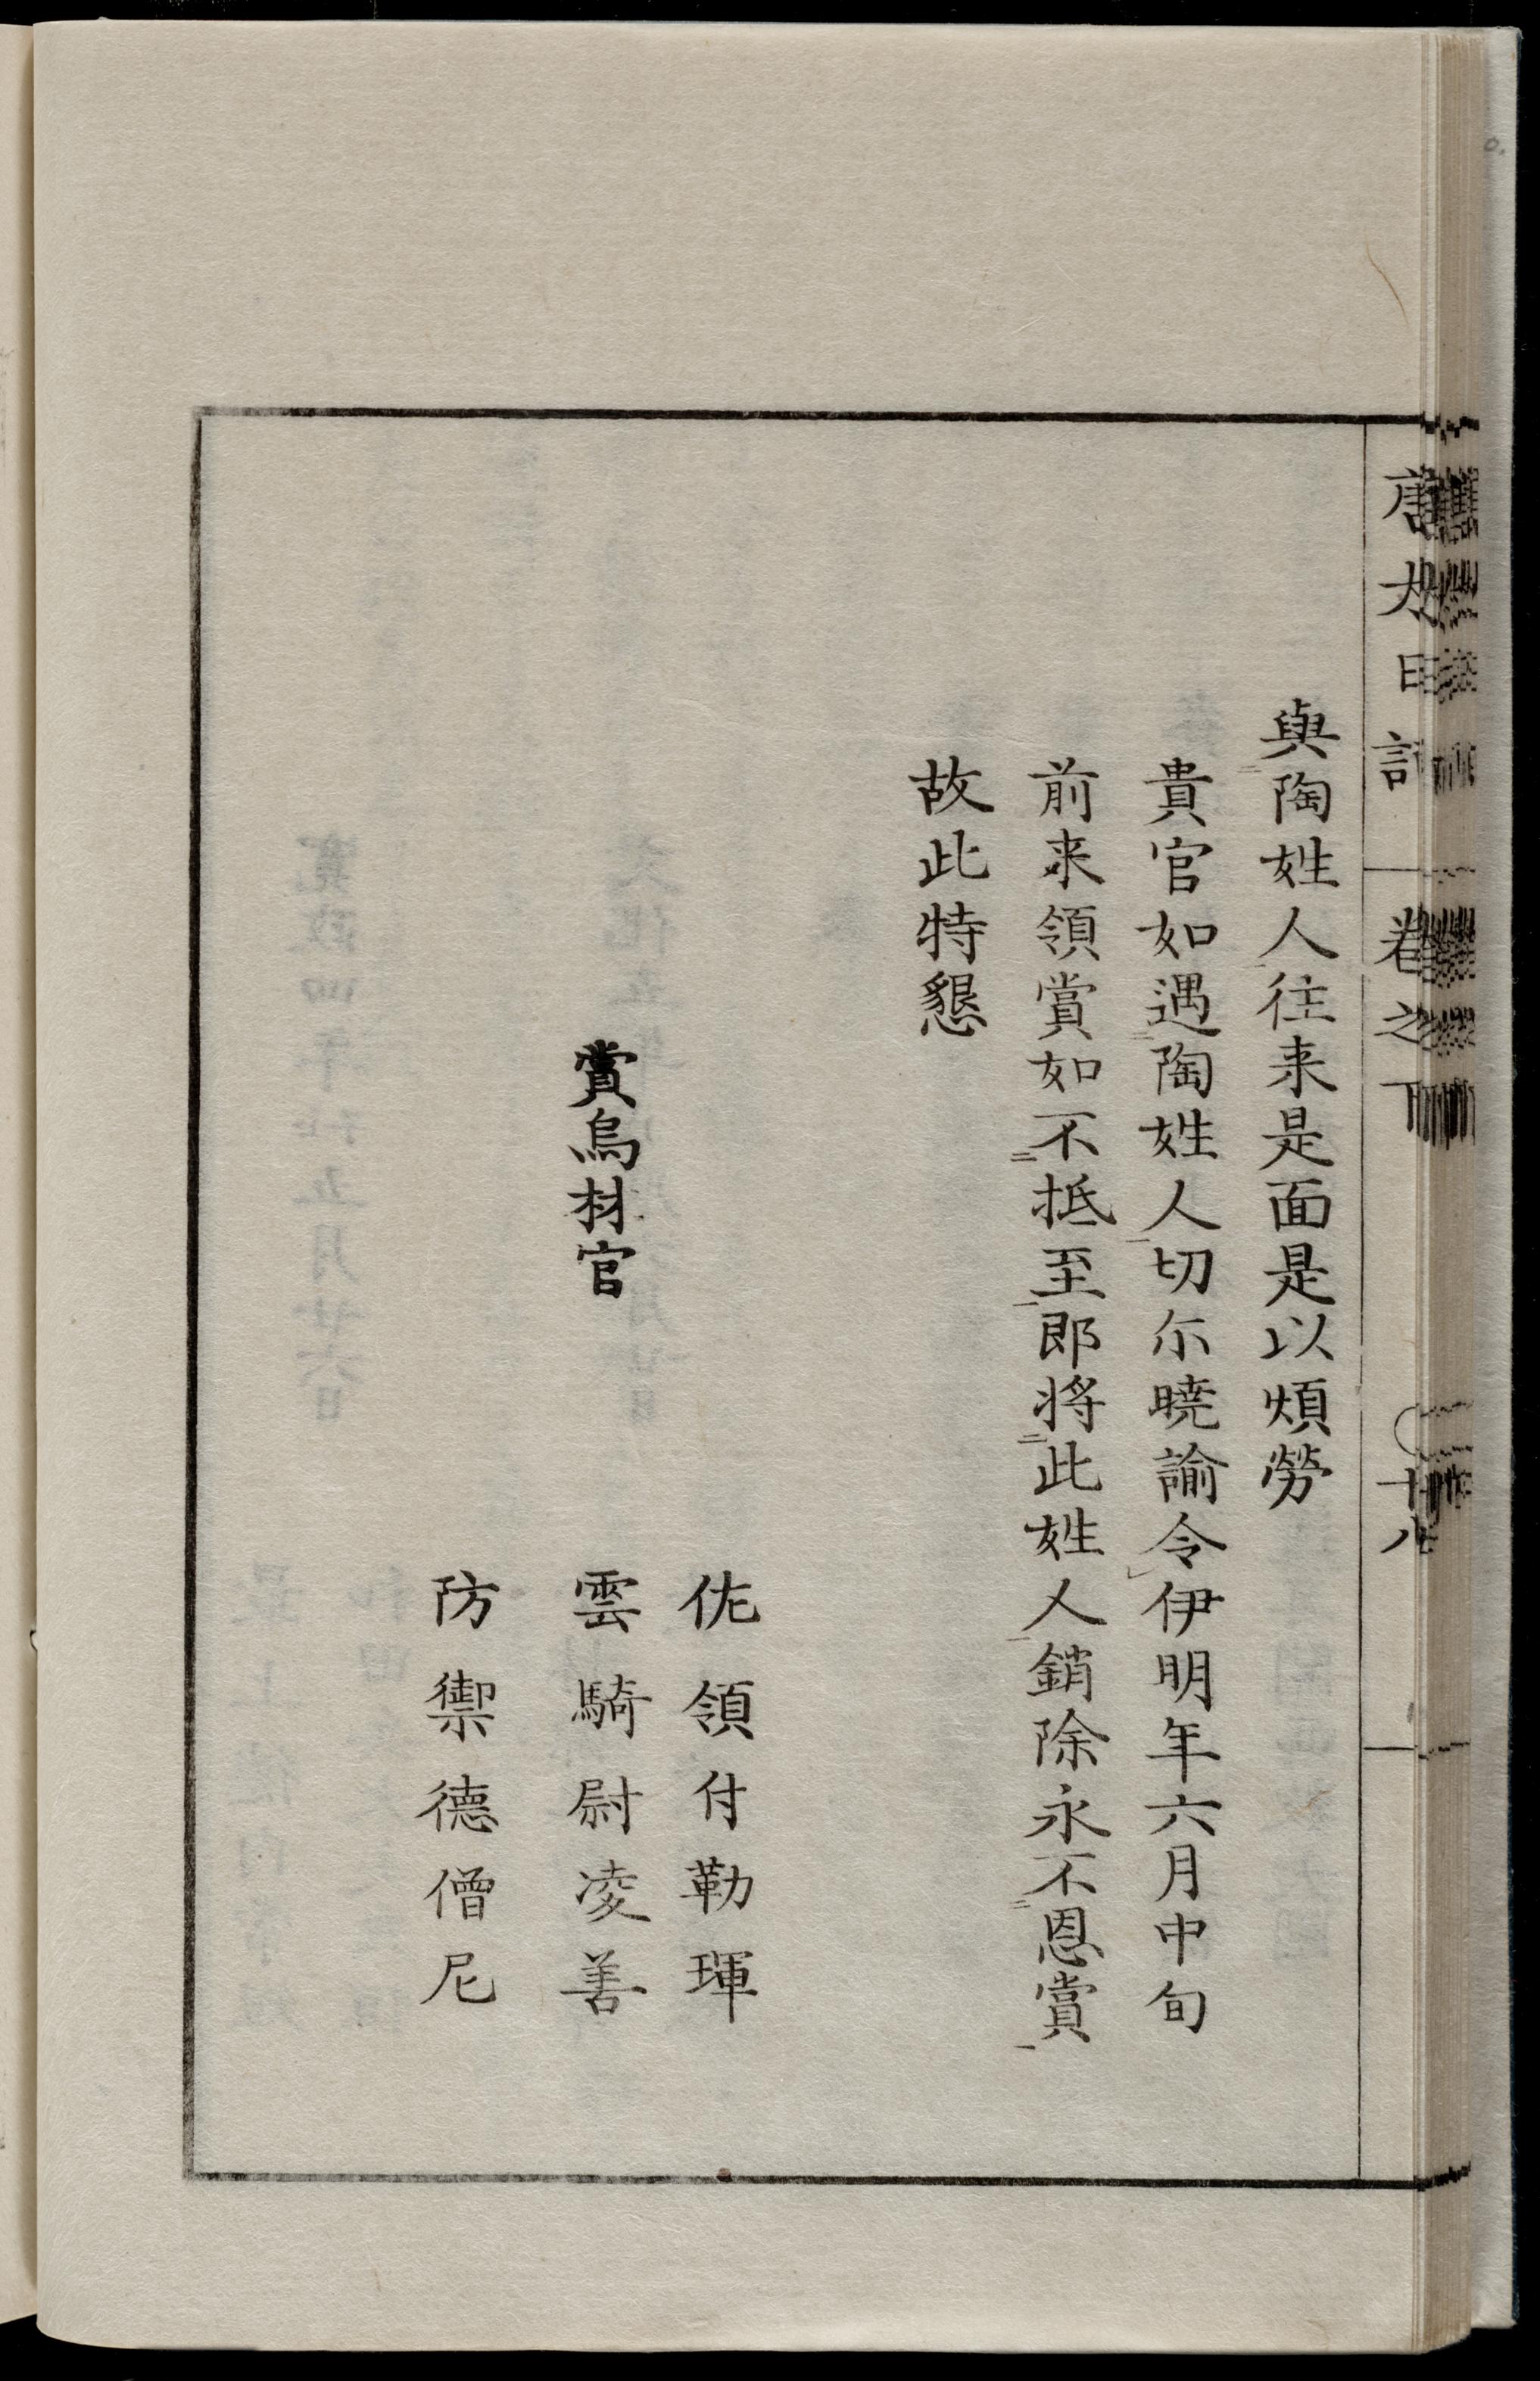 唐太日記　卷之下　十八
與陶姓人往来是面是以煩勞
貴官如遇陶姓人切尓曉諭令伊明年六月中旬
前来領賞如不抵至郎將此姓人銷除永不恩賞
故此特懇
佐領付勒琿
賞烏林官　雲騎尉凌善
防禦德僧尼